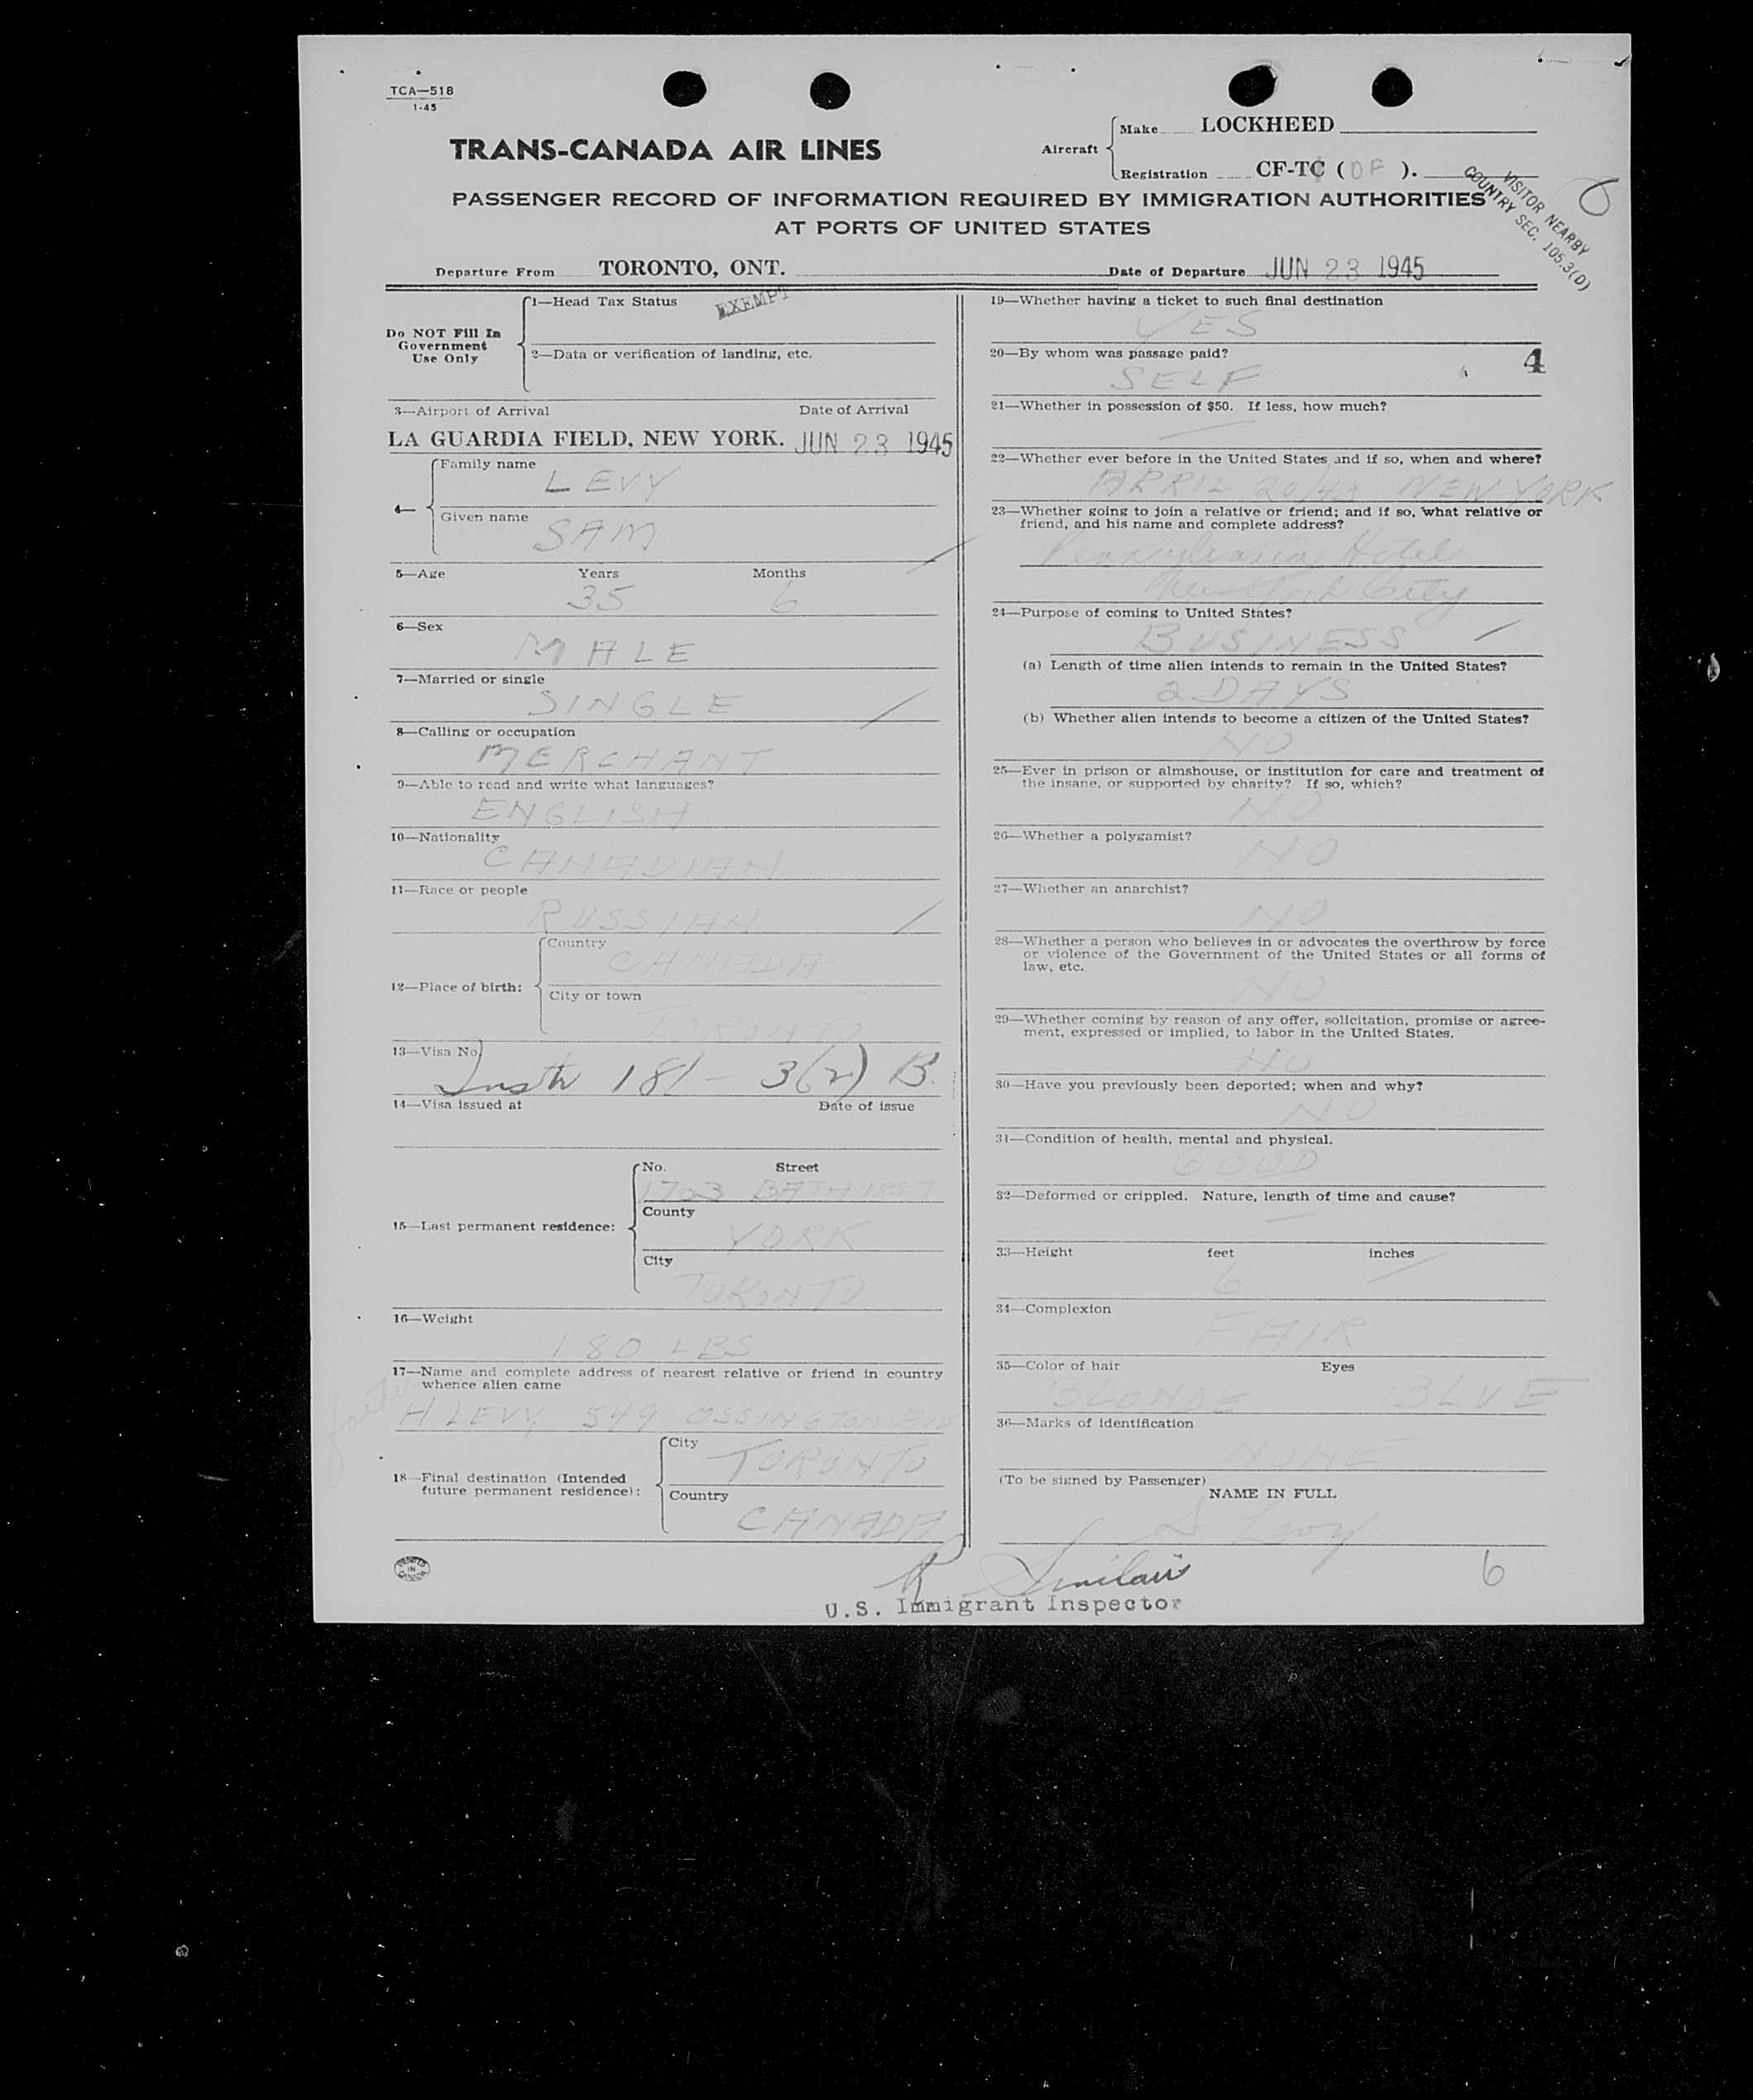 TCA—518
1-45
TRANS-CANADA AIR LINES
Aircraft
Make LOCKHEED
Registration CF-TC ( DF ).
PASSENGER RECORD OF INFORMATION REQUIRED BY IMMIGRATION AUTHORITIES
AT PORTS OF UNITED STATES
VISITOR NEARBY
COUNTRY SEC. 105.3(D)
Departure From TORONTO, ONT. Date of Departure JUN 23 1945
Do NOT Fill In
Government
Use Only
1—Head Tax Status EXEMPT
2—Data or verification of landing, etc.
3—Airport of Arrival Date of Arrival
LA GUARDIA FIELD, NEW YORK. JUN 23 1945
4—
Family name
LEVY
Given name
SAM
5—Age Years Months
35 6
6—Sex
MALE
7—Married or single
SINGLE
8—Calling or occupation
MERCHANT
9—Able to read and write what languages?
ENGLISH
10—Nationality
CANADIAN
11—Race or people
RUSSIAN
12—Place of birth:
Country
CANADA
City or town
TORONTO
13—Visa No.
Instr 181 - 3(2) B.
14—Visa issued at Date of issue
15—Last permanent residence:
No. Street
1703 BATHURST
County
YORK
City
TORONTO
16—Weight
180 LBS
17—Name and complete address of nearest relative or friend in country
whence alien came
father
H LEVY 549 OSSINGTON
18—Final destination (Intended
future permanent residence):
City
TORONTO
Country
CANADA
PRINTED
IN
CANADA
19—Whether having a ticket to such final destination
YES
20—By whom was passage paid?
4
SELF
21—Whether in possession of $50. If less, how much?
22—Whether ever before in the United States and if so, when and where?
APRIL 20/43 NEW YORK
23—Whether going to join a relative or friend; and if so, what relative or
friend, and his name and complete address?
Pennsylvania Hotel
New York City
24—Purpose of coming to United States?
BUSINESS
(a) Length of time alien intends to remain in the United States?
2 DAYS
(b) Whether alien intends to become a citizen of the United States?
NO
25—Ever in prison or almshouse, or institution for care and treatment of
the insane, or supported by charity? If so, which?
NO
26—Whether a polygamist?
NO
27—Whether an anarchist?
NO
28—Whether a person who believes in or advocates the overthrow by force
or violence of the Government of the United States or all forms of
law, etc.
NO
29—Whether coming by reason of any offer, solicitation, promise or agree-
ment, expressed or implied, to labor in the United States.
NO
30—Have you previously been deported; when and why?
NO
31—Condition of health, mental and physical.
GOOD
32—Deformed or crippled. Nature, length of time and cause?
—
33—Height feet inches
6
34—Complexion
FAIR
35—Color of hair Eyes
BLONDE BLUE
36—Marks of identification
NONE
(To be signed by Passenger)
NAME IN FULL
S Levy
6
R Sinclair
U.S. Immigrant Inspector